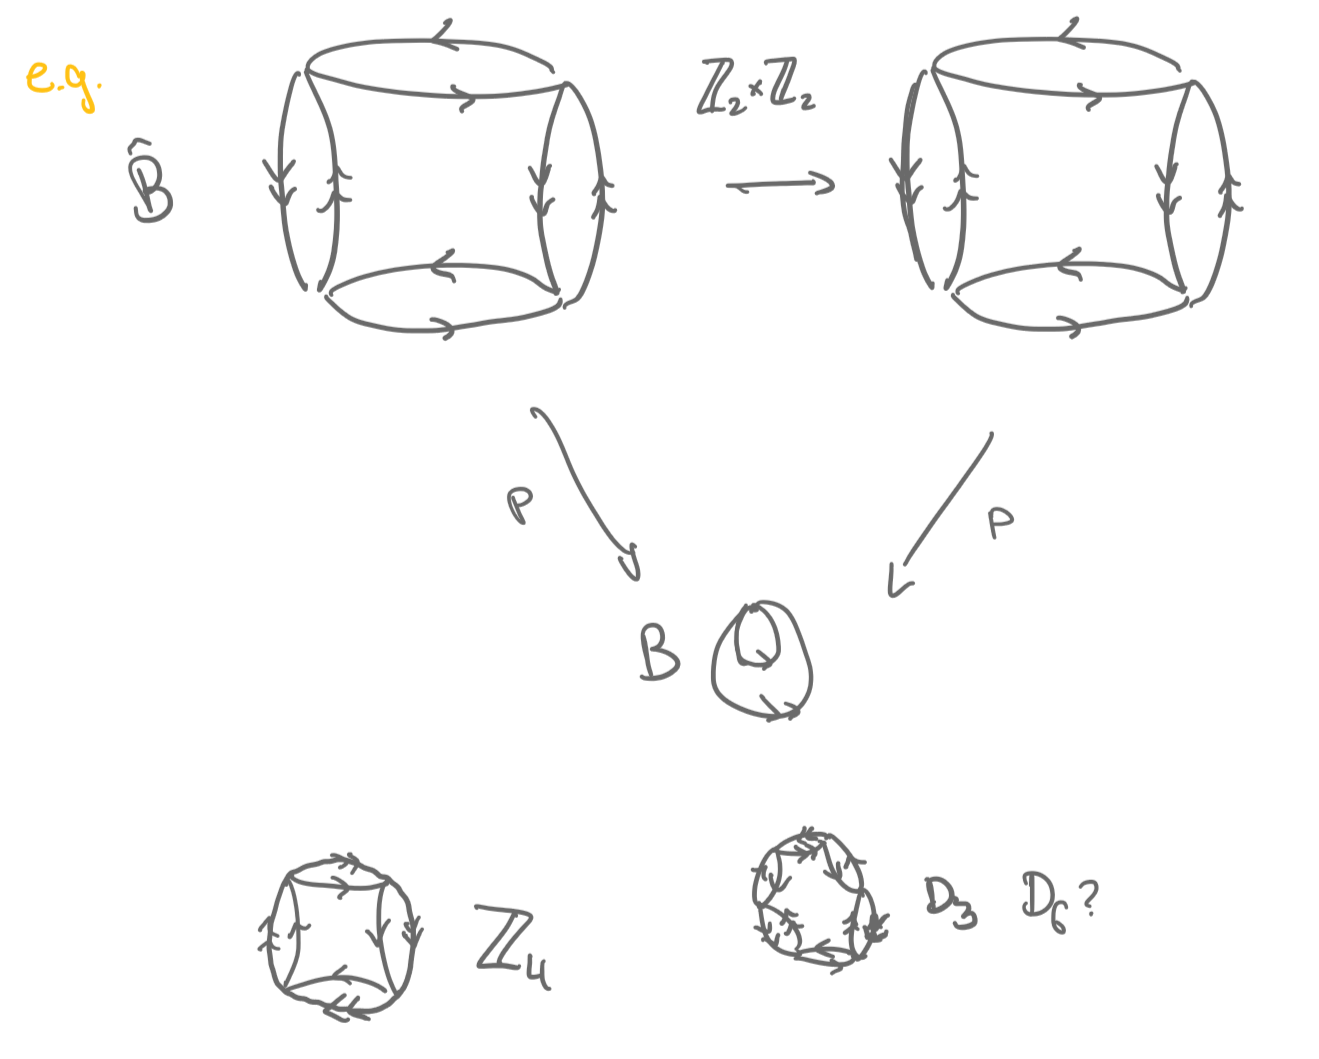 e.g.
B̂
ℤ₂×ℤ₂
P
P
B
ℤ₄
D₃ D₆?